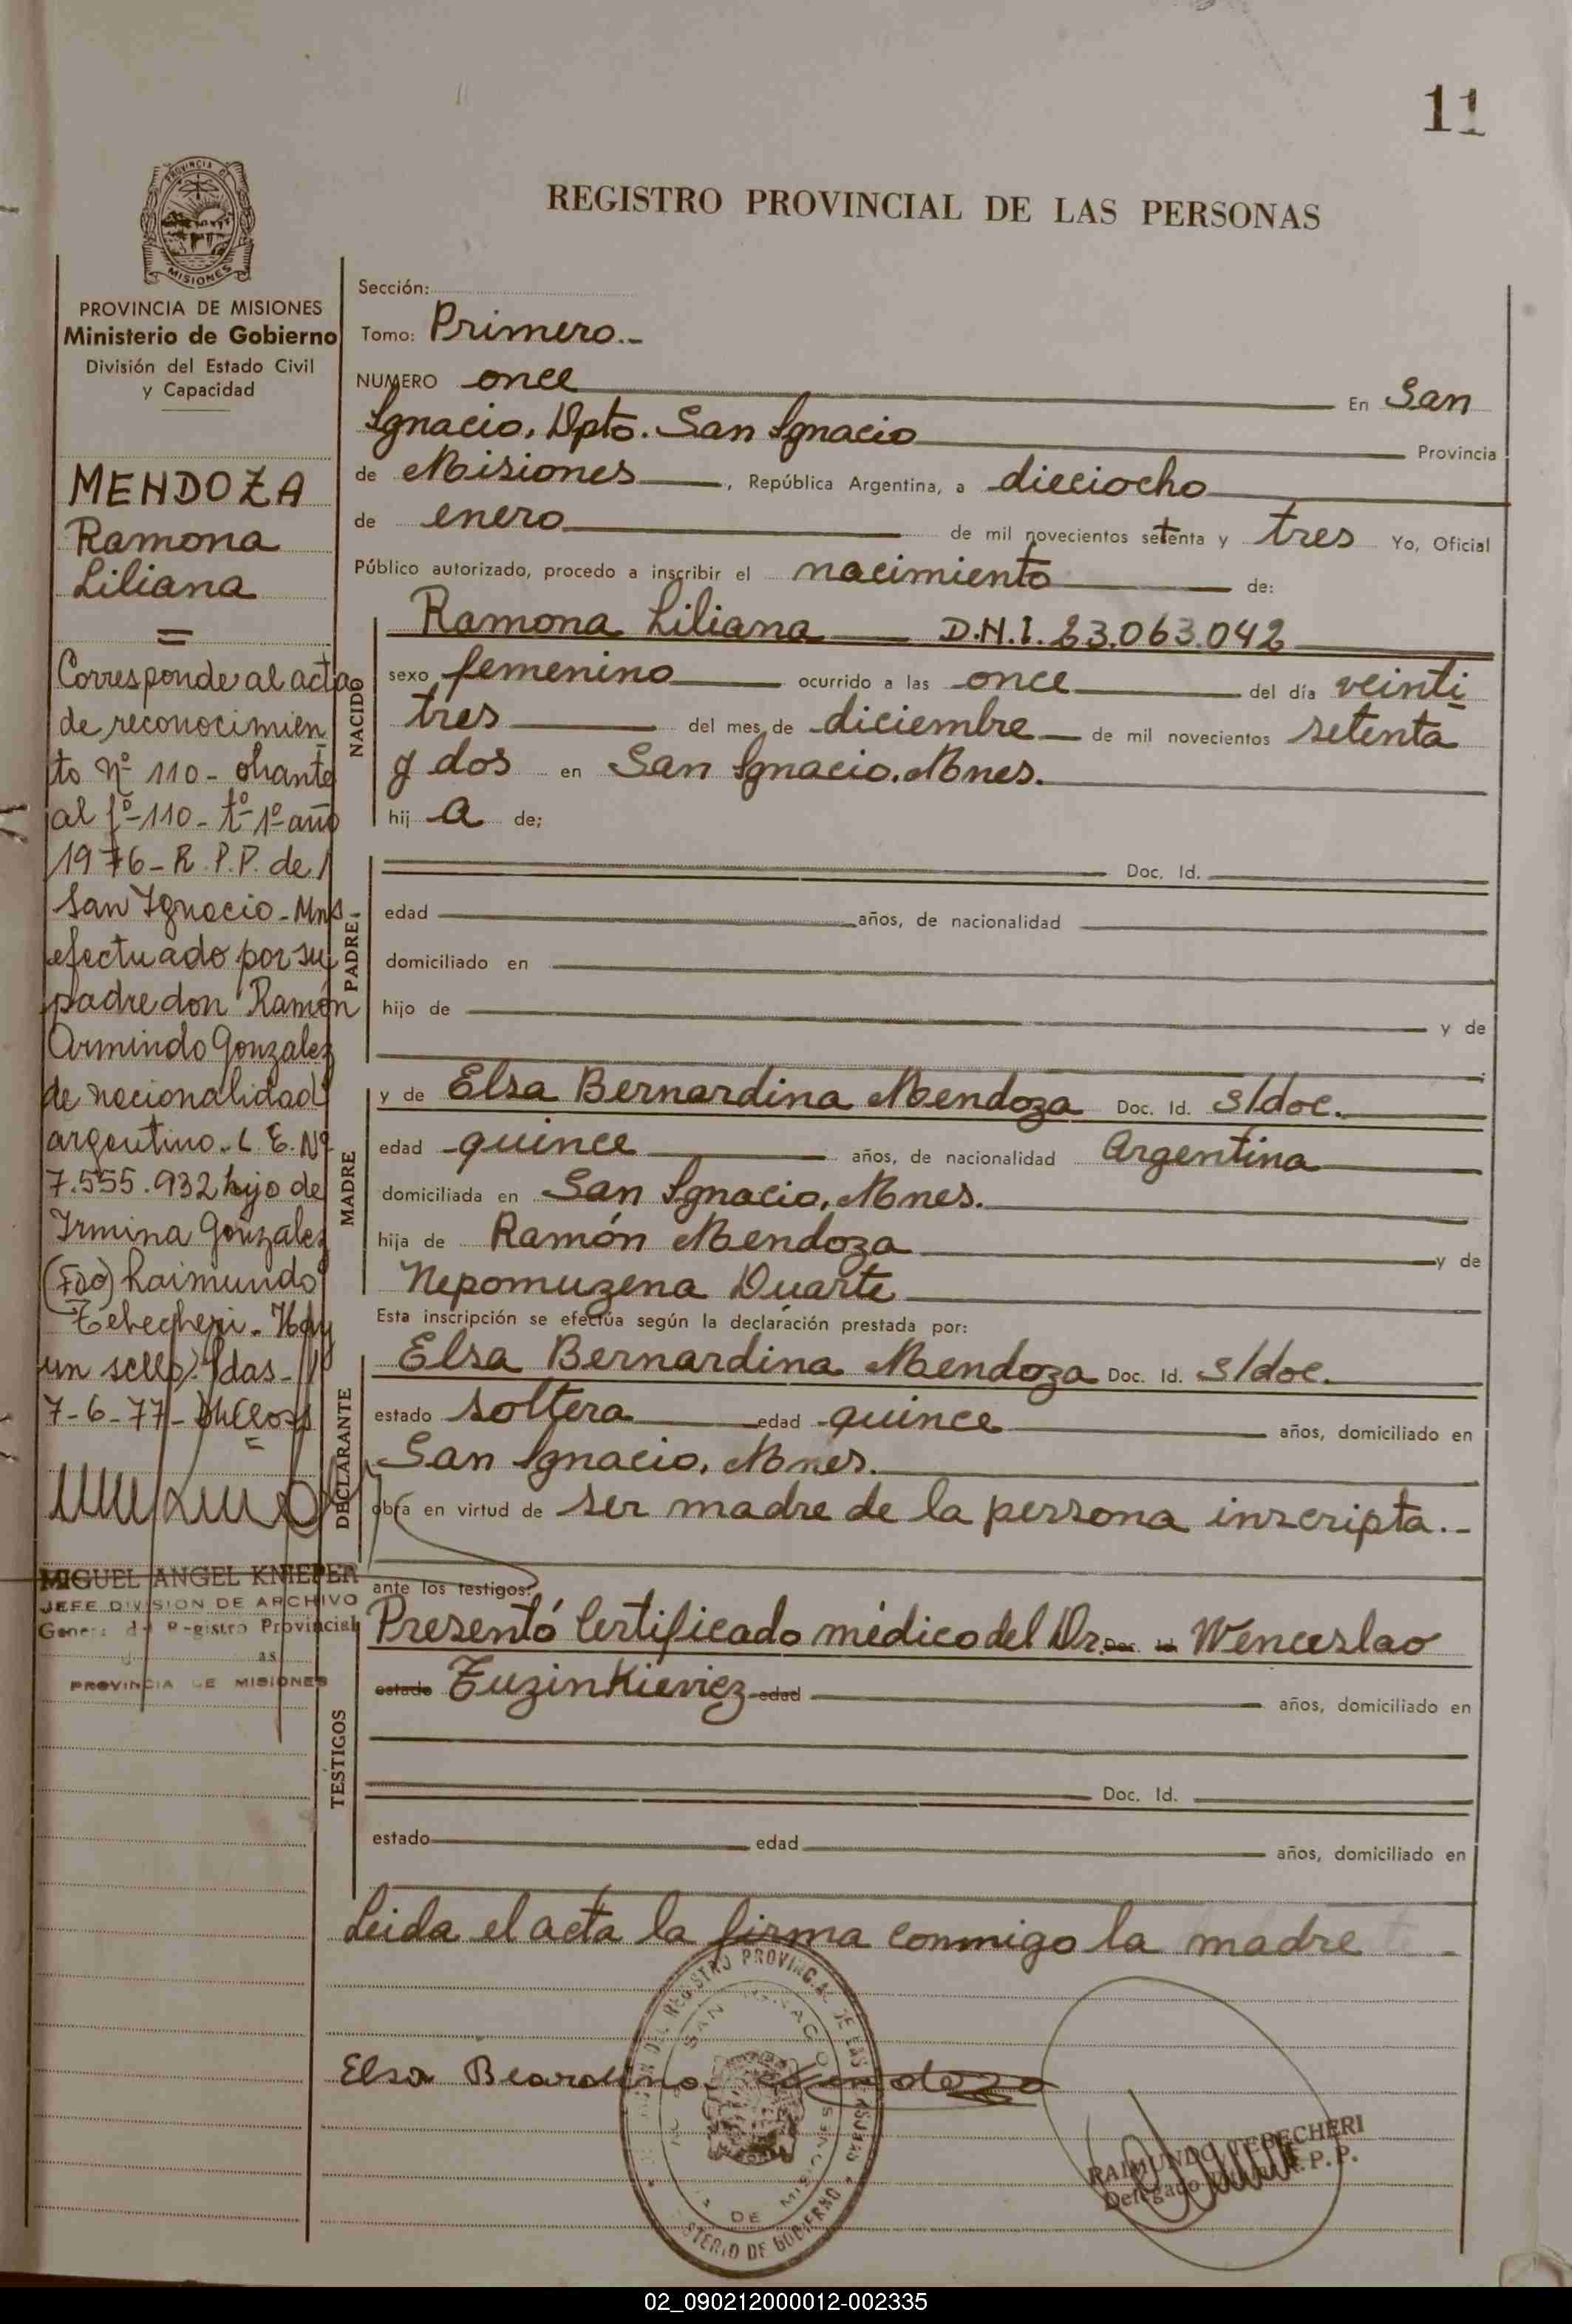 11
REGISTRO PROVINCIAL DE LAS PERSONAS
PROVINCIA DE
MISIONES
PROVINCIA DE MISIONES
Ministerio de Gobierno
División del Estado Civil
y Capacidad
MENDOZA
Ramona
Liliana
=
Corresponde al acta
de reconocimien
to Nº 110- obrante
al fº-110- tº-1º-año
1976- R.P.P. de
San Ignacio-Mns-
efectuado por su
padre don Ramón
Armindo Gonzalez
de nacionalidad
argentino-L.E.Nº
7.555.932 hijo de
Irmina Gonzalez
(Fdo) Raimundo
Tebecheri. Hay
un sello). Pdas-
7-6-77-
MIGUEL ANGEL KNIEPER
JEFE DIVISION DE ARCHIVO
General del Registro Provincial
as
PROVINCIA DE MISIONES
Sección:
Tomo: Primero.-
NUMERO once En San
Ignacio, Dpto. San Ignacio Provincia
de Misiones, República Argentina, a dieciocho
de enero de mil novecientos setenta y tres Yo, Oficial
Público autorizado, procedo a inscribir el nacimiento de:
NACIDO
Ramona Liliana D.N.I. 23.063.042
sexo femenino ocurrido a las once del día veinti
tres del mes de diciembre de mil novecientos setenta
y dos en San Ignacio. Mnes.
hij a de;
PADRE
Doc. Id.
edad años, de nacionalidad
domiciliado en
hijo de y de
MADRE
y de Elsa Bernardina Mendoza Doc. Id. s/doc.
edad quince años, de nacionalidad Argentina
domiciliada en San Ignacio, Mnes.
hija de Ramón Mendoza y de
Nepomuzena Duarte
Esta inscripción se efectúa según la declaración prestada por:
DECLARANTE
Elsa Bernardina Mendoza Doc. Id. s/doc.
estado soltera edad quince años, domiciliado en
San Ignacio, Mnes.
obra en virtud de ser madre de la persona inscripta.-
ante los testigos:
TESTIGOS
Presentó Certificado médico del Dr. Doc. Id. Wenceslao
estado Tuzinkievicz edad años, domiciliado en
Doc. Id.
estado edad años, domiciliado en
Leida el acta la firma conmigo la madre
DEL REGISTRO PROVINCIAL DE LAS PERSONAS
SAN IGNACIO
DE MISIONES
MINISTERIO DE GOBIERNO
Elsa Mendoza
RAIMUNDO TEBECHERI
Delegado R.P.P.
02_090212000012-002335